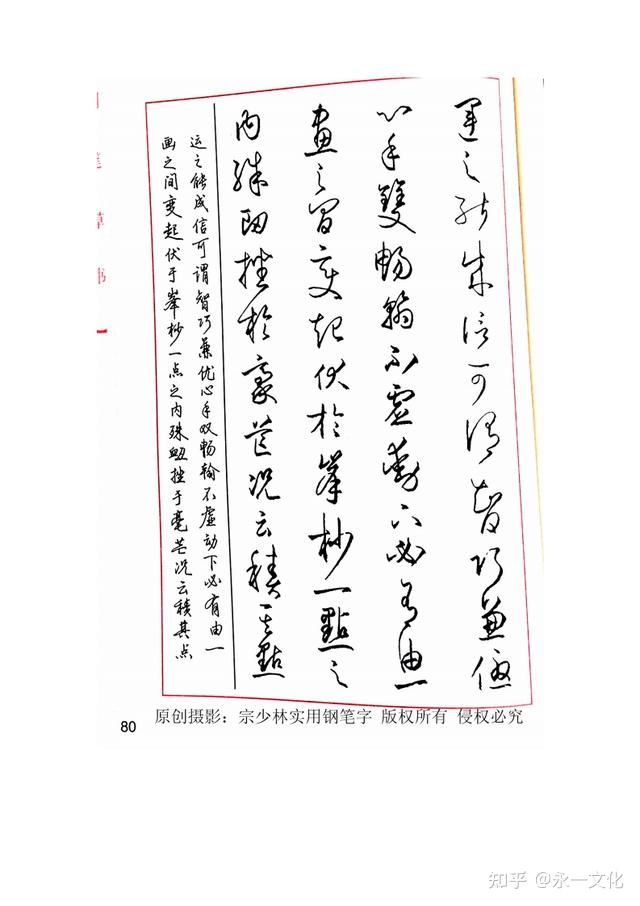 運之斯成信可謂智巧兼優
心手雙暢翰不虛動下必有由一
畫之間變起伏於峯杪一點之
內殊衂挫於豪芒況云積其點
运之能成信可谓智巧兼优心手双畅翰不虚动下必有由一
画之间变起伏于峯杪一点之内殊衂挫于毫芒况云积其点
笔
草
书
80
原创摄影：宗少林实用钢笔字 版权所有 侵权必究
知乎 @永一文化